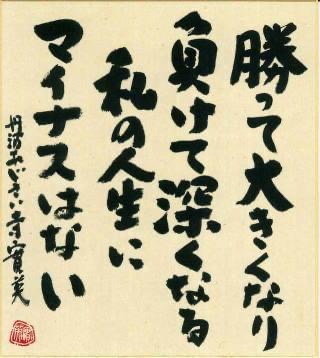 勝って大きくなり
負けて深くなる
私の人生に
マイナスはない
丹波あいさい寺實英